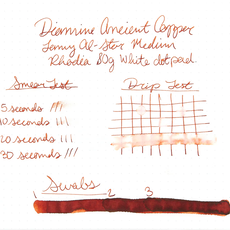 Diamine Ancient Copper
Lamy Al-Star Medium
Rhodia 80g White dotpad.
Smear Test
Drip Test
5 seconds ///
10 seconds ///
20 seconds ///
30 seconds ///
Swabs
1 2 3